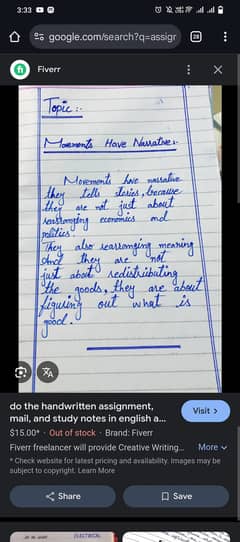 3:33
google.com/search?q=assigr
28
Fiverr
Topic:-
Movements Have Narrative:
Movements have narrative
they tells stories, because
they are not just about
rearranging economics and
politics.
They also rearranging meaning
And they are not
just about redistributing
the goods, they are about
figuring out what is
good.
do the handwritten assignment,
mail, and study notes in english a...
Visit >
$15.00* · Out of stock · Brand: Fiverr
Fiverr freelancer will provide Creative Writing...
More
* Check website for latest pricing and availability. Images may be
subject to copyright. Learn More
Share
Save
ELECTRICAL